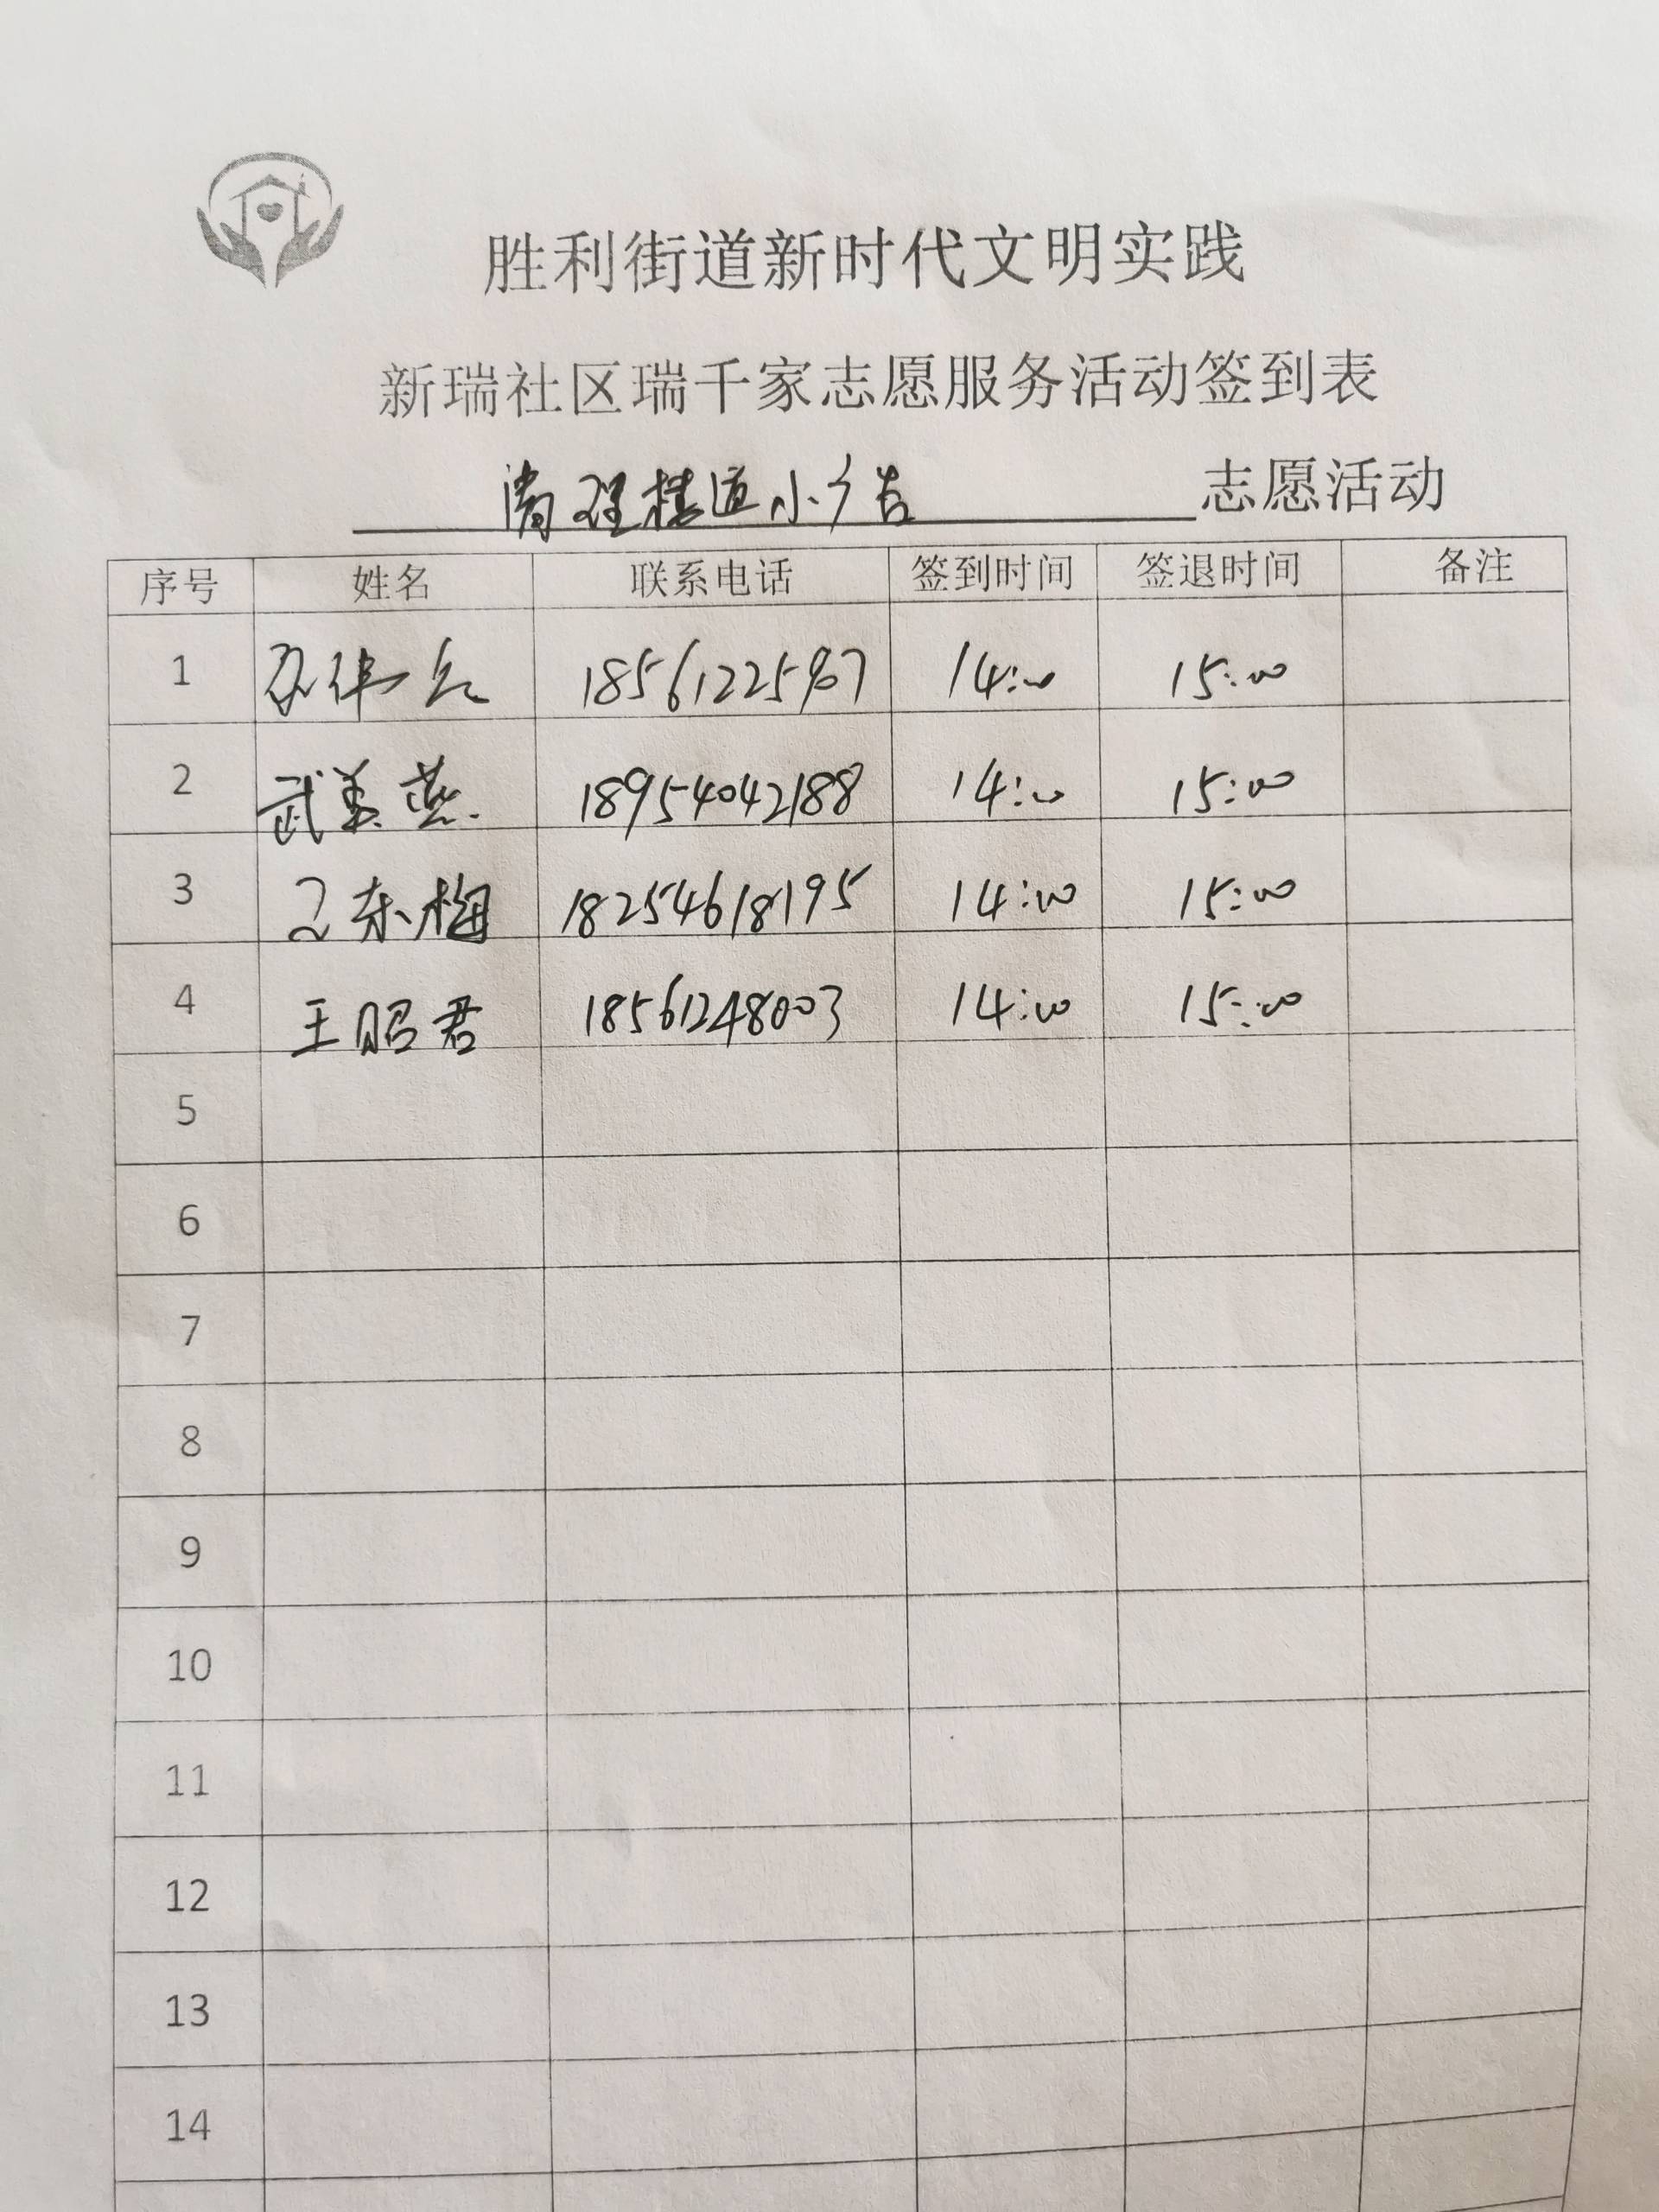 胜利街道新时代文明实践
新瑞社区瑞千家志愿服务活动签到表
清理楼道小广告 志愿活动
序号 姓名 联系电话 签到时间 签退时间 备注
1 14:00 15:00
2 武美燕 18954042188 14:00 15:00
3 东梅 18254618195 14:00 15:00
4 王昭君 18561248003 14:00 15:00
5
6
7
8
9
10
11
12
13
14